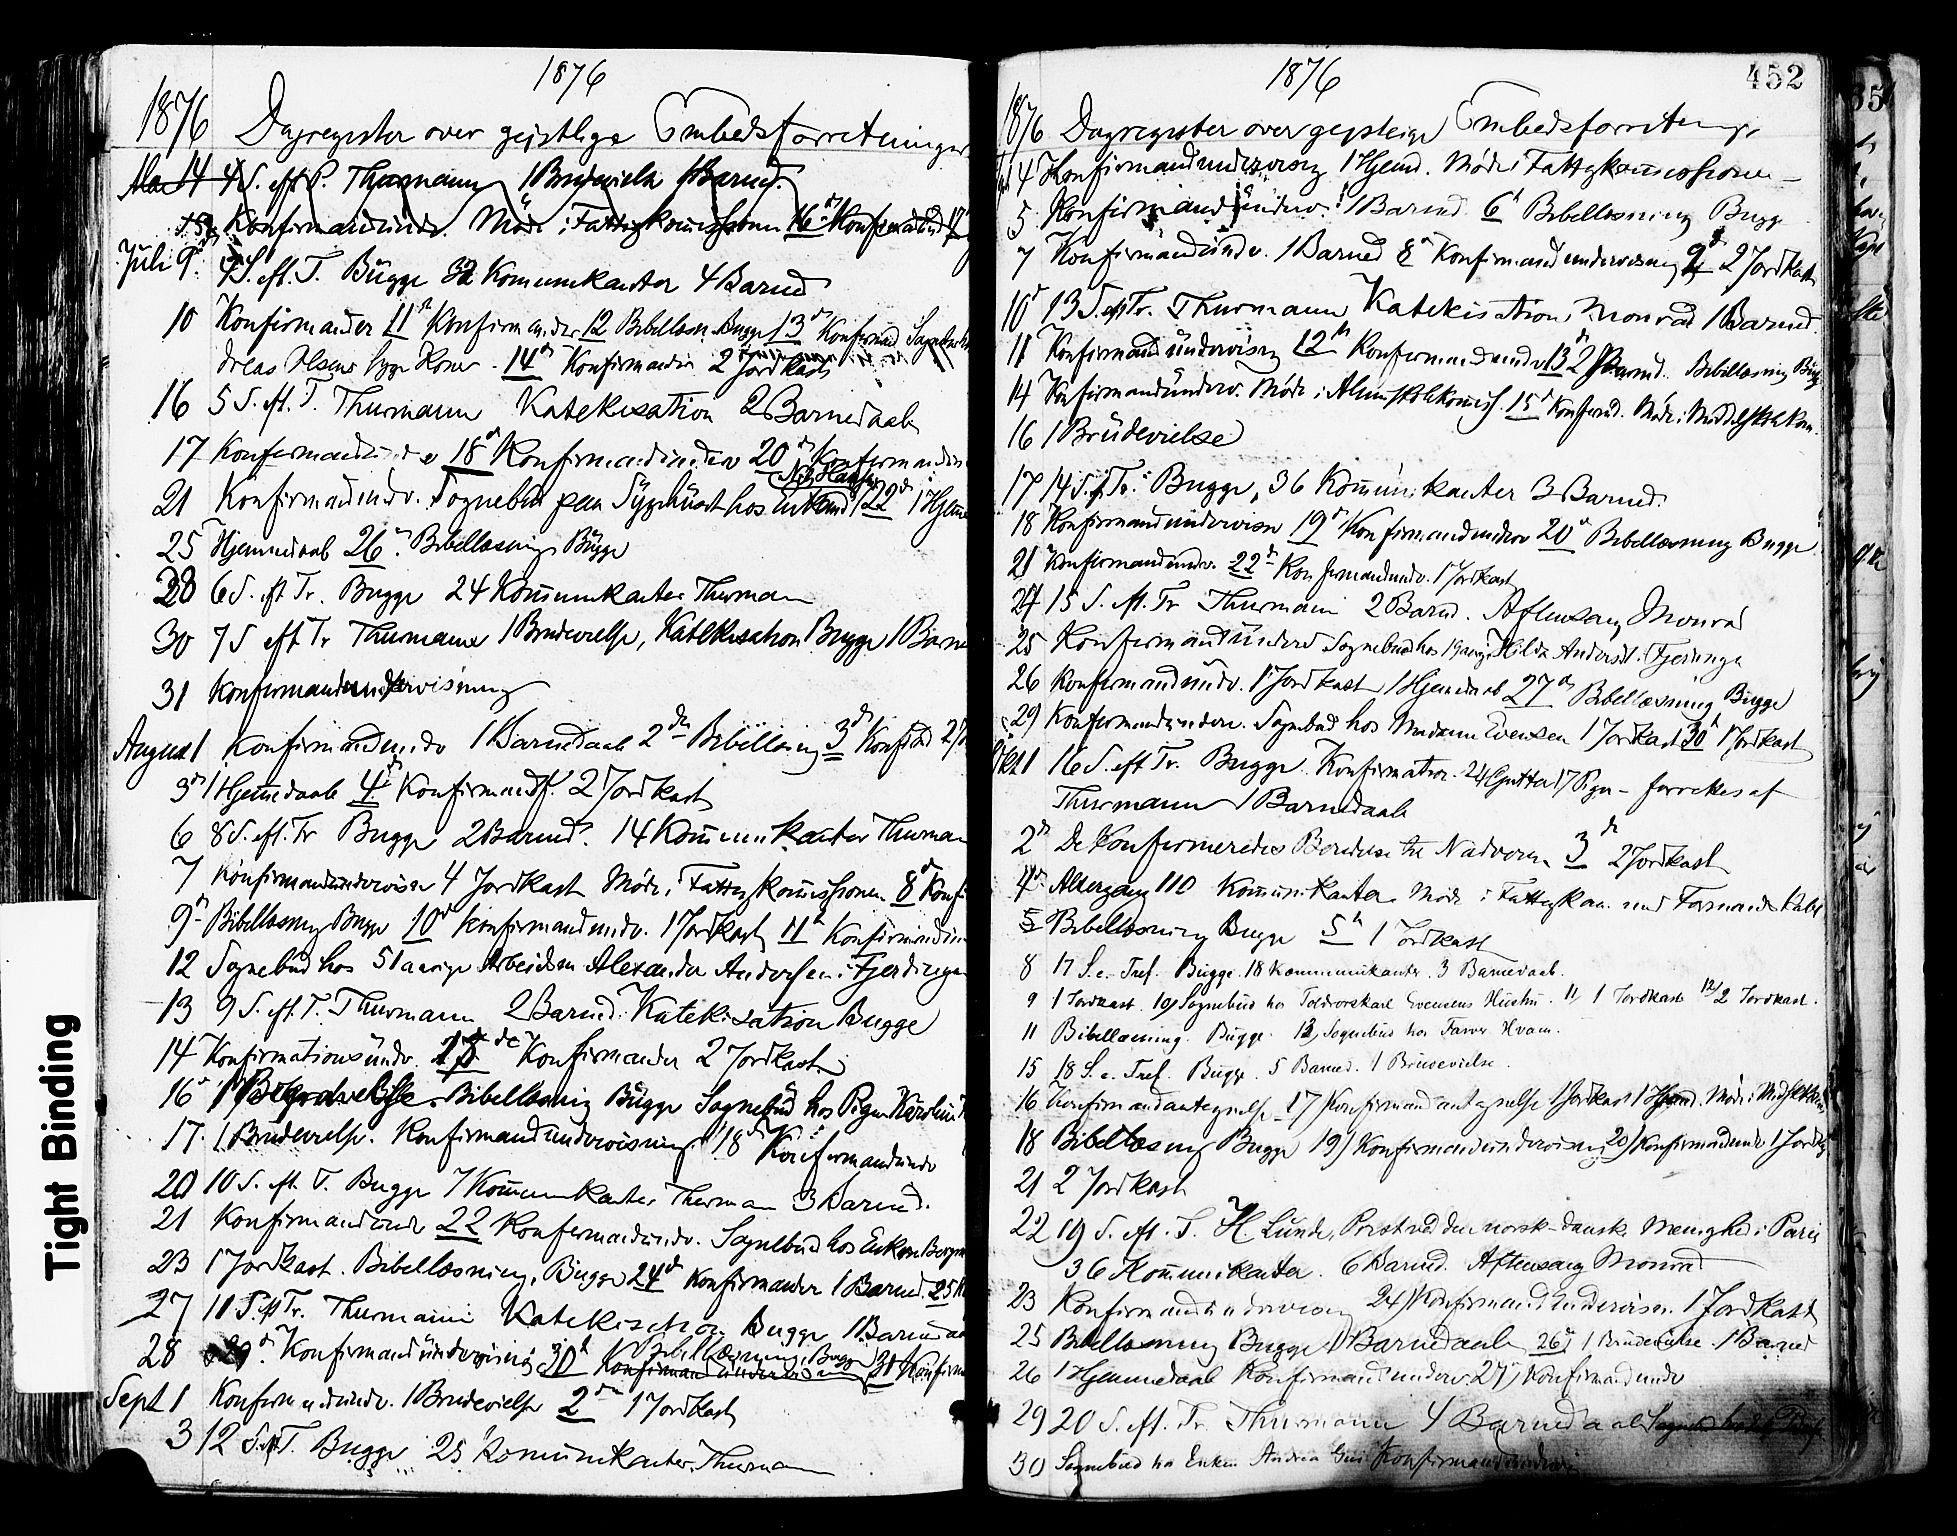 1876
1876 Dagregister over gejstlige Embedsforretninger
Mai 14 4 S. eft P. Thurmann 1 Brudevielse 1 Barned.
15 Konfirmandunderv. Møde i Fattigkommissionen 16 Konfirmandund 17
Juli 9 4 S. eft. T. Bugge 32 Kommunikanter 4 Barned
10 Konfirmander 11te Konfirmander 12 Bibellæsn. Bugge 13d Konfirmd
dreas Olsens hyge Koner. 14de Konfirmandu 2 Jordkast
16 5 S. eft. T. Thurmann Katekisation 2 Barnedaab
17 Konfirmandunderv 18de Konfirmandunderv 20de Konfirmandun
21 Konfirmandundv. Sognebud paa Sygehuset hos Nils Hansen 22d 1 Hjemme
25 Hjemmedaab 26de Bibellæsning Bugge
28 6 S. eft Tr. Bugge 24 Kommunikanter Thurmann
30 7 S eft Tr Thurmann 1 Brudevielse, Katekisation Bugge 1 Barne
31 Konfirmandundervisning
August 1 Konfirmandundv 1 Barnedaab 2den Bibellæsning 3de Konfirmd 2 Jo
3de 1 Hjemmedaab 4de Konfirmandf. 2 Jordkast
6 8 S. eft. Tr Bugge 2 Barned. 14 Kommunikanter Thurman
7 Konfirmandundervisn 4 Jordkast Møde i Fattigkommissionen 8d Konfi
9de Bibellæsning Bugge 10de Konfirmandundv. 1 Jordkast 11te Konfirmandun
12 Sognebud hos 51 aarige Arbeidsm Alexander Andersen i Fjerdingen
13 9 S. eft. T. Thurmann 2 Barned. Katekisation Bugge
14 Konfirmationsundv. 15 de Konfirmander 2 Jordkast
16de Bibellæsning Bugge Sognebud hos Pigen Karoline
17 1 Brudevielse. Konfirmandundervisning 18de Konfirmandundv
20 10 S. eft. T. Bugge 7 Kommunikanter Thurman 3 Barned.
21 Konfirmandundv 22 Konfirmandundv. Sognebud hos Enken Bergm
23 1 Jordkast. Bibellæsning. Bugge 24de Konfirmander 1 Barned. 25 K
27 11 S. eft Tr. Thurmann Katekisation Bugge 1 Barnedaa
28 29d. Konfirmandundervisning 30te Konfirmandundervisning Bibellæsning Bugge 31 Konfirm
Sept 1 Konfirmandundv. 1 Brudevielse 2den 1 Jordkast
3 12 S. eft T. Bugge 25 Kommunikanter. Thurmann
1876
452
1876 Dagregister over gejstlige Embedsforretninger
4 Konfirmandundervisng 1 Hjemd. Møde i Fattigkommissionen
5 Konfirmandunderv. 1 Barned 6te Bibellæsning Bugge
7 Konfirmandundv. 1 Barned 8de Konfirmandundervisning 9de 2 Jordkast
10de 13 S. eft Tr. Thurmann Katekisation Monrad 1 Barned
11 Konfirmandundervisng 12te Konfirmandundv 13 2 Barned. Bibellæsning Bug
14 Konfirmandunderv. Møde i Almuskolekommiss. 15de Konfirmd. Møde i Middelskolekom.
16 1 Brudevielse
17 14 S. eft Tr. Bugge, 36 Kommunikanter 3 Barned.
18 Konfirmandundervisn 19de Konfirmandunderv 20de Bibellæsning Bugge
21 Konfirmandundv. 22de Konfirmandundv. 1 Jordkast
24 15 S. eft. Tr Thurmann 2 Barned. Aftensang Monrad
25 Konfirmandunderv Sognebud hos 19 aarige Hilda Andersd. Fjerdingen
26 Konfirmandundv. 1 Jordkast 1 Hjemmedaab 27de Bibellæsning Bugge
29 Konfirmandunderv. Sognebud hos Madam Evensen 1 Jordkast 30te 1 Jordkast
Okt 1 16 S. eft Tr. Bugge. Konfirmation. 24 Gutter 17 Piger – forrettes af
Thurmann 1 Barnedaab
2den De Konfirmeredes Beredelse til Nadveren 3de 2 Jordkast
4de Altergang 110 Kommunikanter Møde i Fattigkom. med Formandskabet
5 Bibellæsning Bugge 5te 1 Jordkast
8 17 S. e. Tref. Bugge. 18 Kommunikanter. 3 Barnedaab.
9 1 Jordkast. 10) Sognebud hos Toldrorskarl Evensens Hustru. 11) 1 Jordkast 12/ 2 Jordkast.
11 Bibellæsning. Bugge. 13) Sognebud hos Farver Hvam.
15 18 S. e. Tref. Bugge. 5 Barned. 1 Brudevielse.
16 Konfirmandantegnelse 17) Konfirmandantegnelse 1 Jordkast 1 Hjemd. Møde i Midlskkom
18 Bibellæsning Bugge 19) Konfirmandundervisning 20) Konfirmandundv 1 Jordk
21 2 Jordkast
22 19 S. eft. T. H Lunde, Præst ved den norsk-danske Menighed i Paris
36 Kommunikanter. 6 Barned. Aftensang Monrad
23 Konfirmandundervisning 24) Konfirmandundervisn. 1 Jordkast
25 Bibellæsning Bugge 1 Barnedaab 26de) 1 Brudevielse. 1 Barned
26 1 Hjemmedaab Konfirmandunderv. 27) Konfirmandundv
29 20 S. eft. Tr. Thurmann 4 Barnedaab
30 Sognebud hos Enken Andrea Konfirmandundervisn
Tight Binding